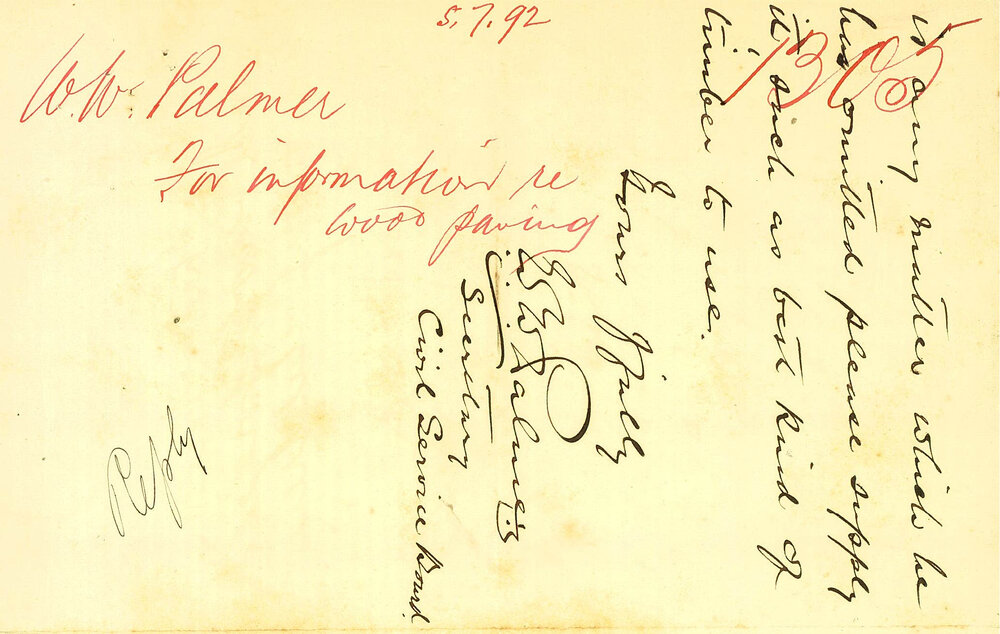 5.7.92
1305
W.W. Palmer
For information re
wood paving
is any matter which he
has omitted please supply
it such as best kind of
timber to use.
Yours ffully
W. Palmer
Secretary
Civil Service Board
Reply